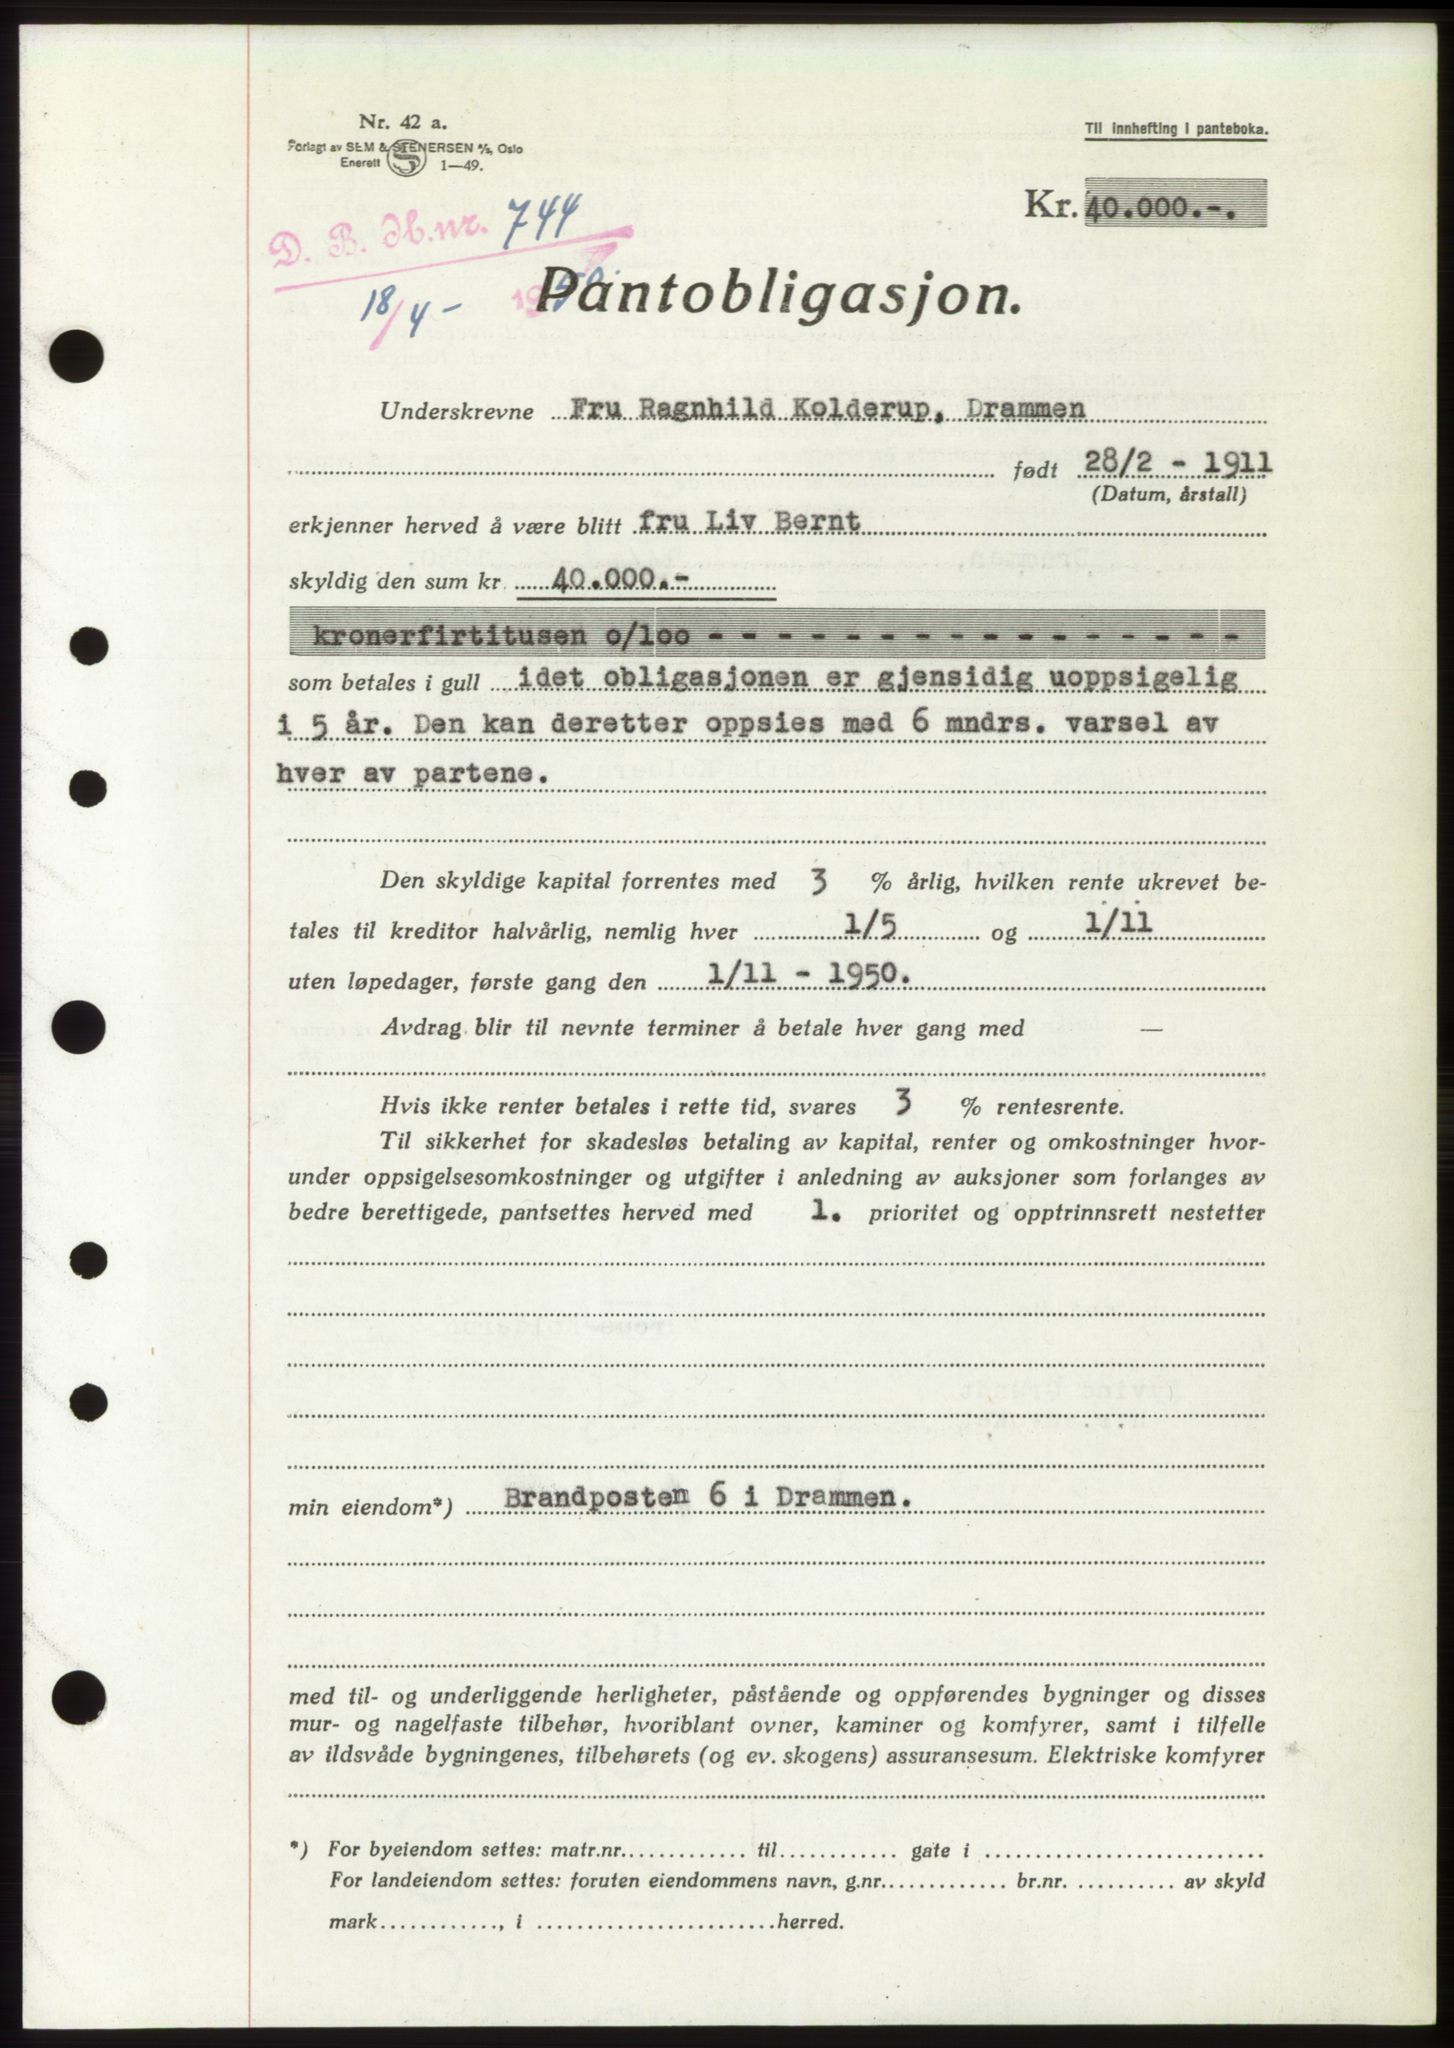 Nr. 42 a.
Forlagt av SEM & STENERSEN A/S, Oslo
Enerett S 1—49.
Til innhefting i panteboka.
Kr. 40.000.-.
D. B. H.nr. 744
18/4 - 1950.
Pantobligasjon.
Underskrevne Fru Ragnhild Kolderup, Drammen
født 28/2 - 1911
(Datum, årstall)
erkjenner herved å være blitt fru Liv Bernt
skyldig den sum kr. 40.000.-
kronerfirtitusen o/loo - - - - - - - - - - - - - - - -
som betales i gull idet obligasjonen er gjensidig uoppsigelig
i 5 år. Den kan deretter oppsies med 6 mndrs. varsel av
hver av partene.
Den skyldige kapital forrentes med 3 % årlig, hvilken rente ukrevet be-
tales til kreditor halvårlig, nemlig hver 1/5 og 1/11
uten løpedager, første gang den 1/11 - 1950.
Avdrag blir til nevnte terminer å betale hver gang med —
Hvis ikke renter betales i rette tid, svares 3 % rentesrente.
Til sikkerhet for skadesløs betaling av kapital, renter og omkostninger hvor-
under oppsigelsesomkostninger og utgifter i anledning av auksjoner som forlanges av
bedre berettigede, pantsettes herved med 1. prioritet og opptrinnsrett nestetter
min eiendom*) Brandposten 6 i Drammen.
med til- og underliggende herligheter, påstående og oppførendes bygninger og disses
mur- og nagelfaste tilbehør, hvoriblant ovner, kaminer og komfyrer, samt i tilfelle
av ildsvåde bygningenes, tilbehørets (og ev. skogens) assuransesum. Elektriske komfyrer
*) For byeiendom settes: matr.nr. til gate i
For landeiendom settes: foruten eiendommens navn, g.nr. br.nr. av skyld
mark , i herred.